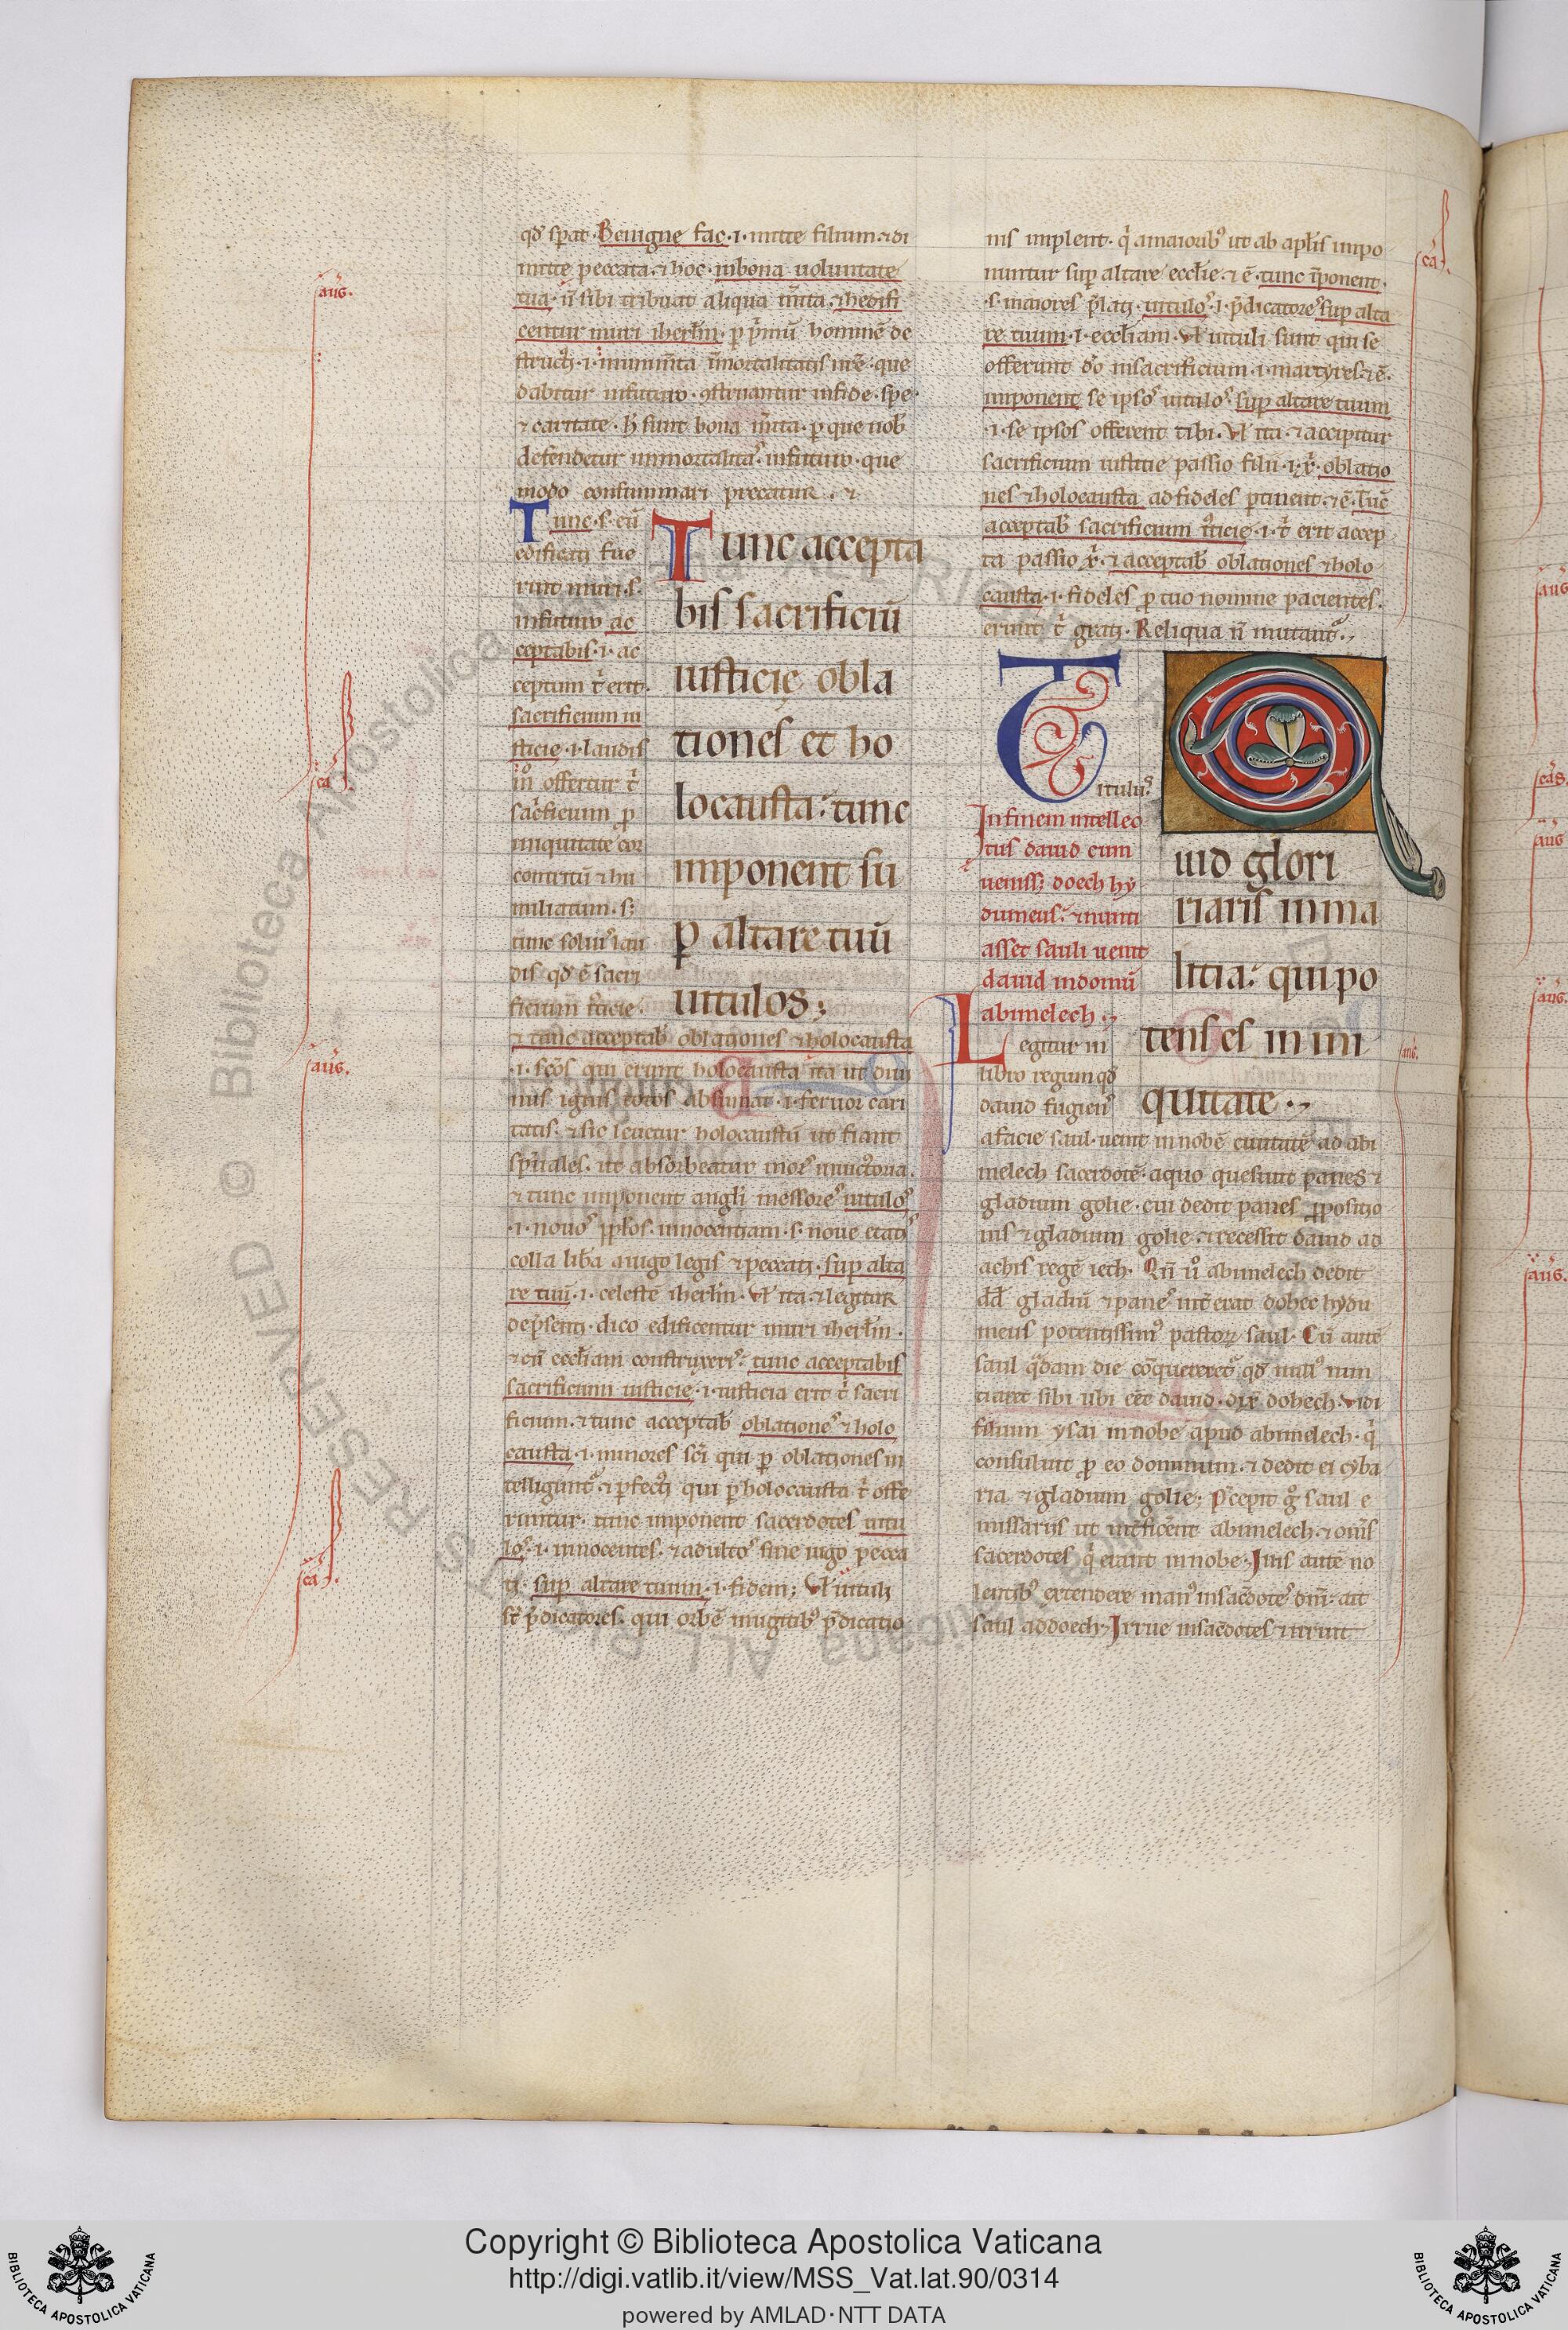 qd̄ sp̄at. Benigne fac .i. mitte filium. ⁊ di
mitte peccata. ⁊ hoc. in bona uoluntate
tua. ń sibi tribuat aliqua m̄ita. ⁊ hedifi
centur muri iherl̄m. p p̄mū hominē de
structi .i. munim̄ta īmortalitatis nr̄e. que
dabitur in futuro. ꝯstruantur in fide. spe.
⁊ caritate. h̄ sunt bona m̄ita. p que nob̄
defendetur immortalitas in futuro. que
modo consummari precatur. ⁊
Tunc .s. cū
edificati fue
rint muri .s.
in futuro ac
ceptabis .i. ac
ceptum t̓ erit.
sacrificium iu
sticie .i. laudis
m̊ offertur t̓
sac̓ficium p
iniquitate cor
contritū ⁊ hu
miliatum .s.
tunc solui² lau
dis qd̄ ē sacri
ficium iusticie.
Tunc accepta
bis sacrificiū
iusticię obla
tiones et ho
locausta: tunc
imponent su
ꝑ altare tuū
uitulos;
⁊ tunc acceptab̄ oblationes ⁊ holocausta
.i. sc̄os qui erunt holocausta ita ut diui
nus ignis totos absumat .i. feruor cari
tatis. ⁊ sic leuetur holocaustū ut fiant
sp̄uales. ut absorbeatur mors in uictoria.
⁊ tunc imponent angl̓i messores uitulos
.i. nouos pp̄los. innocentiam .s. noue etatis
colla lib̓a a iugo legis ⁊ peccati. sup alta
re tuū .i. celestē iherl̄m. Vl̓ ita. ⁊ legitur
de p̄senti. dico edificentur muri iherl̄m.
⁊ cū eccl̄iam construxeris: tunc acceptabis
sacrificium iusticie .i. iusticia erit t̓ sacri
ficium. ⁊ tunc acceptab̄ oblationes ⁊ holo
causta .i. minores sc̄i qui p oblationes in
telligunt̄. ⁊ pfecti qui p holocausta t̓ offe
runtur. tunc imponent sacerdotes uitu
los .i. innocentes. ⁊ adultos sine iugo pecca
ti. sup altare tuum .i. fidem; Vl̓ uituli
st̓ p̄dicatores. qui orbē mugitib² p̄dicatio
nis implent. q̓ a maiorib² ut ab apl̓is impo
nuntur sup altare eccl̄ie. ⁊ ē. tunc īponent.
.s. maiores p̄lati. uitulos .i. p̄dicatores sup alta
re tuum .i. eccl̄iam. Vl̓ uituli sunt qui se
offerunt d̄o in sacrificium .i. martyres. ⁊ ē.
imponent se ipsos uitulos. sup altare tuum
.i. se ipsos offerent tibi. Vl̓ ita. ⁊ accipitur
sacrificium iustitie passio filii .i. x̄. oblatio
nes ⁊ holocausta ad fideles ptinent. ⁊ ē. Tūc
acceptab̄ sacrificium iusticie .i. t̓ erit accep
ta passio x̄. ⁊ acceptab̄ oblationes ⁊ holo
causta .i. fideles p tuo nomine pacientes.
erunt t̓ grati. Reliqua ń mutant̄.
Titulus.
In finem intellec
tus dauid cum
uenisset doech hy
dumeus: ⁊ nunti
asset sauli uenit
dauid in domū
abimelech.
Quid glori
riaris in ma
litia: qui po
tens es in ini
quitate.
Legitur in
libro regum qd̄
dauid fugiens
a facie saul. uenit in nobē ciuitatē ad abi
melech sacerdotē. a quo quesiuit panes ⁊
gladium golie. cui dedit panes ppositio
nis ⁊ gladium golie. ⁊ recessit dauid ad
achis regē ieth. Qn̄ ů abimelech dedit
dd̄ gladiū ⁊ panes int̓erat dohec hydu
meus potentissimus pastorum saul. Cū autē
saul q̓dam die cōqueretet̄ qd̄ nullus nun
tiaret sibi ubi eēt dauid. dix̄ dohech. vidi
filium ysai in nobe apud abimelech. q̓
consuluit p eo dominum. ⁊ dedit ei cyba
ria ⁊ gladium golie; P̄cepit g̊ saul e
missariis ut int̓ficēnt abimelech. ⁊ om̄s
sacerdotes q̓ erant in nobe. Illis autē no
lentib² extendere manus in sac̄dotes dn̄i. ait
saul ad doech. Irrue in sac̄dotes ⁊ irruit
aug.
ca.
aug.
ca.
ca.
aug.
aug.
cas.
aug
aug.
aug.
Copyright © Biblioteca Apostolica Vaticana
http://digi.vatlib.it/view/MSS_Vat.lat.90/0314
powered by AMLAD·NTT DATA
BIBLIOTECA APOSTOLICA VATICANA
BIBLIOTECA APOSTOLICA VATICANA